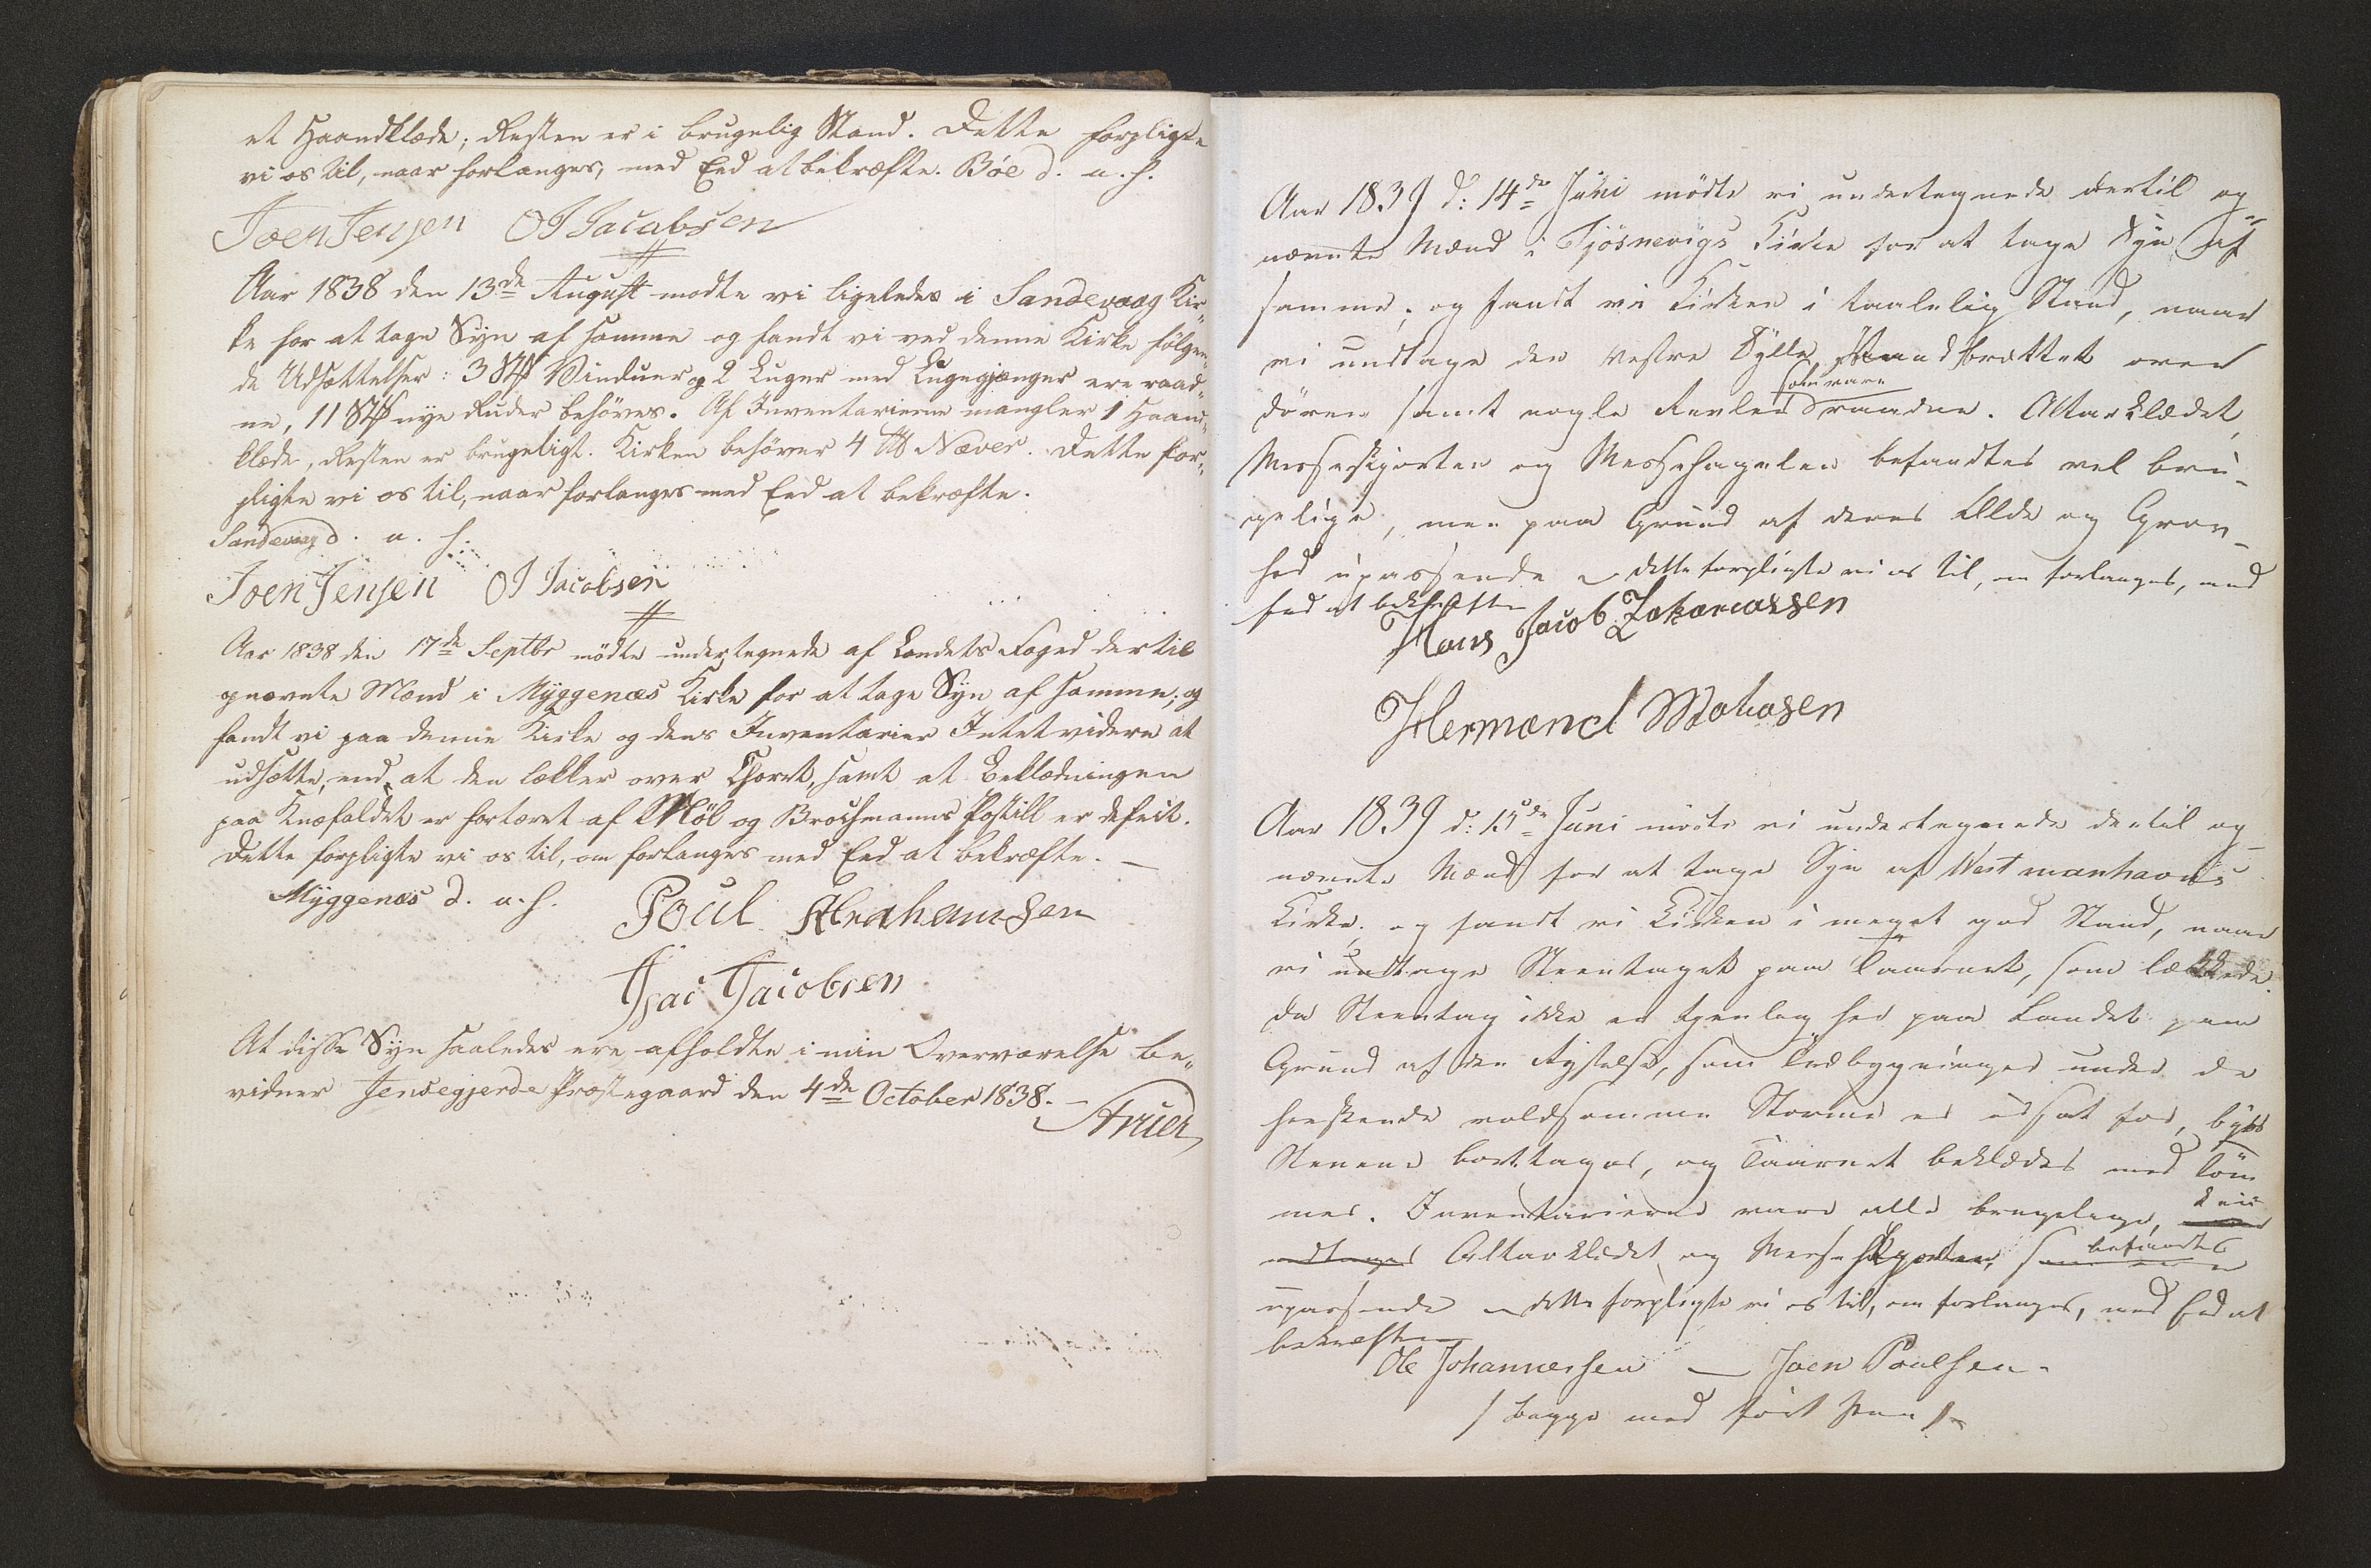 et Haandklæde; Resten er i brugelig Stand. Dette forpligte
vi os til, naar forlanges, med Eed at bekræfte. Böe d. u. s.
Joen Jensen OJ Jacobsen
Aar 1838 den 13de August mödte vi ligeledes i Sandevaag Kir„
ke for at tage Syn af samme og fandt vi ved denne Kirke fölgen„
de Udsættelser: 3 Stk Vinduer og 2 Luger med Lugegjænger ere raad„
ne, 11 Stk nye Ruder behöves. Af Inventarierne mangler 1 Haand„
klæde, Resten er brugeligt. Kirken behöver 4 Næver. Dette for„
pligte vi os til, naar forlanges med Eed at bekræfte.
Sandevaag d. u. s.
Joen Jensen OJ Jacobsen
Aar 1838 den 17de Septbr mödte undertegnede af Landets Foged dertil
opnævnte Mænd i Myggenæs Kirke for at tage Syn af samme; og
fandt vi paa denne Kirke og dens Inventarier Intet videre at
udsætte, end at den lækker over Choret, samt at Beklædningen
paa Knæfaldet er fortæret af Möl og Brochmanns Postill er defect.
Dette forpligte vi os til, om forlanges med Eed at bekræfte. —
Myggenæs d. u. s. Poul Abrahamsen
Isac Jacobsen
At disse Syn saaledes ere afholdte i min Overværelse be„
vidner Jensegjerde Præstegaard den 4de October 1838. —
Aar 1839 d: 14de Juni mödte vi undertegnede dertil op„
nævnte Mænd i Tjösnevigs Kirke for at tage Syn af
samme, og fandt vi Kirken i taalelig Stand, naar
vi undtage den vestre Sylle, Vandbrættet over
som vare
dören samt nogle Revler raadne. Alterklædet,
Messeskjorten og Messehagelen befandtes vel bru-
gelige, men paa Grund af deres Ælde og Grov-
hed upassende – dette forpligte vi os til, om forlanges, med
Eed at bekræfte
Hans Jacob Zakariassen
Hermand Mohasen
Aar 1839 d: 15de Juni mödte vi undertegnede dertil op-
nævnte Mænd for at tage Syn af Westmanhavns
Kirke, og fandt vi Kirken i meget god Stand, naar
vi undtage Steentaget paa Taarnet, som lækkede.
Da Steentag ikke er tjenlig her paa Landet paa
Grund af den Rystelse, som Træbygninger under de
herskende voldsomme Storme er udsat for, bör
Stenene borttages, og Taarnet beklædes med Töm
mer. Inventarierne vare alle brugelige, kun
undtages Alterklædet og Messeskjorten, befandtes
upassende – dette forpligte vi os til, om forlanges, med Eed at
bekræfte
Ole Johannessen — Joen Poulsen.
/ begge med fört Pen /